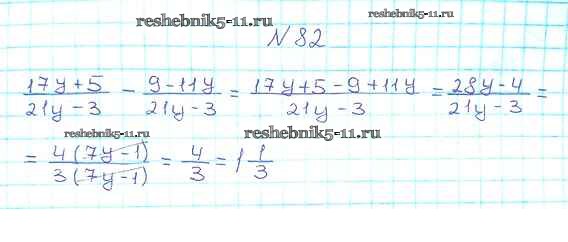 reshebnik5-11.ru
reshebnik5-11.ru
N 82
17y+5/21y-3 - 9-11y/21y-3 = 17y+5-9+11y/21y-3 = 28y-4/21y-3 =
reshebnik5-11.ru
reshebnik5-11.ru
= 4(7y-1)/3(7y-1) = 4/3 = 1 1/3